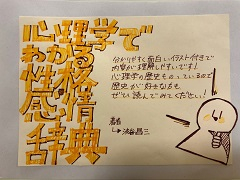 心理学で
わかる
性格
感情
辞典
分かりやすく面白いイラスト付きで
内容が理解しやすいです！
心理学の歴史ものっているので
歴史が好きな方も
ぜひ読んでみてください！
著者
↳渋谷昌三